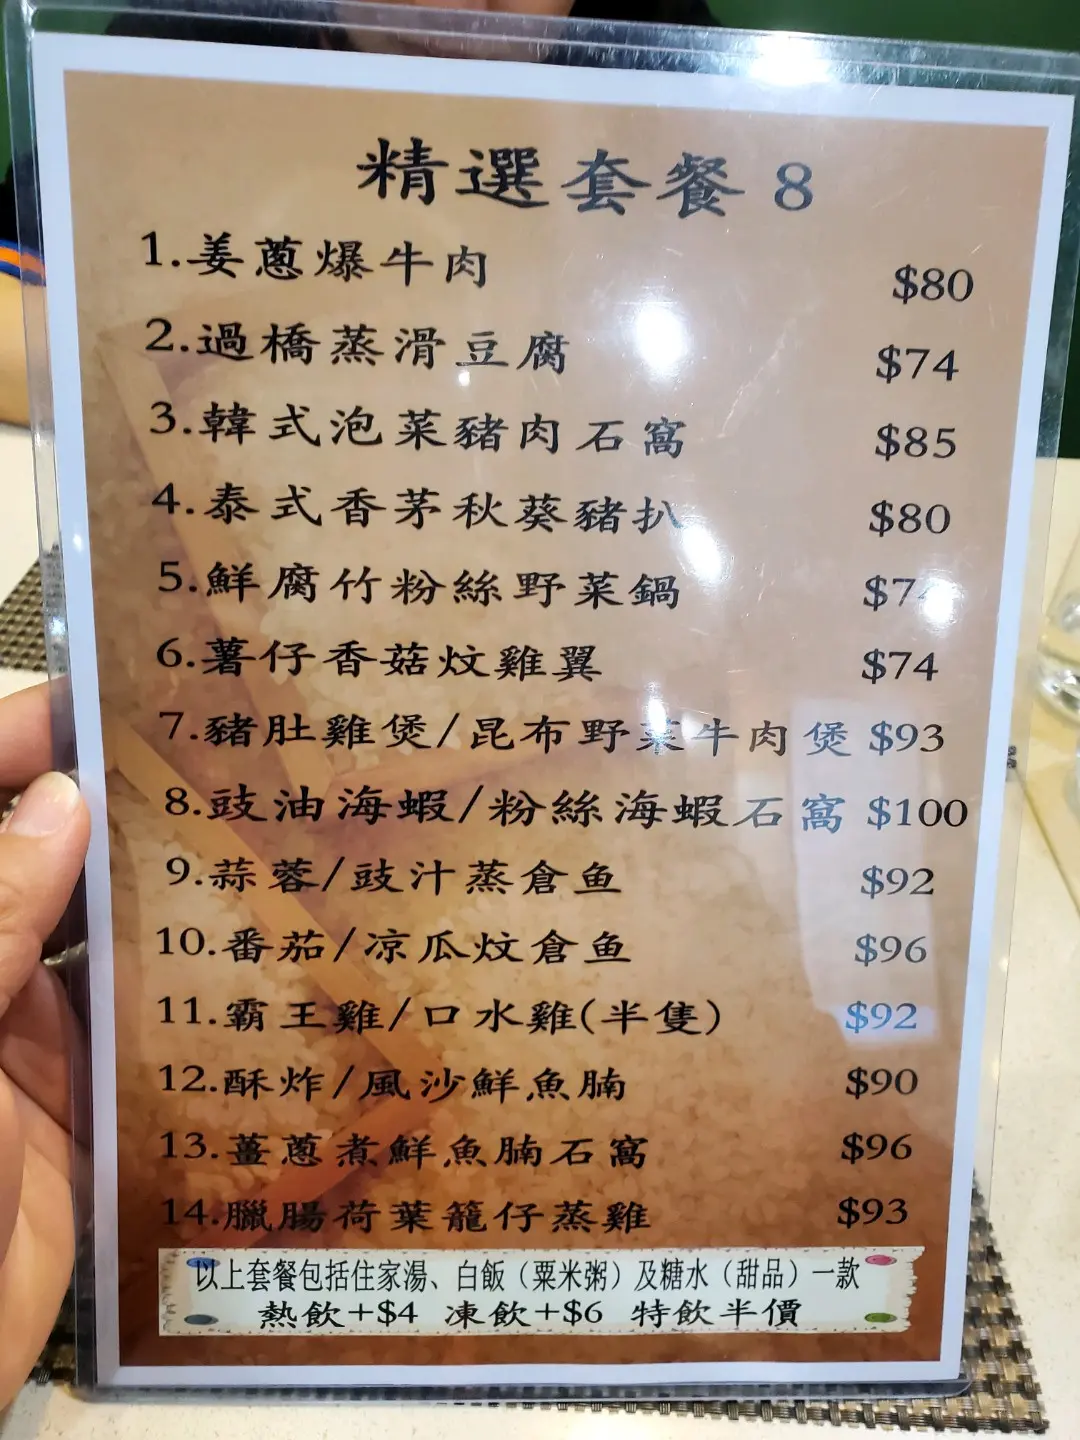 精選套餐 8
1.姜蔥爆牛肉 $80
2.過橋蒸滑豆腐 $74
3.韓式泡菜豬肉石窩 $85
4.泰式香茅秋葵豬扒 $80
5.鮮腐竹粉絲野菜鍋
6.薯仔香菇炆雞翼 $74
7.豬肚雞煲/昆布野菜牛肉煲 $93
8.豉油海蝦/粉絲海蝦石窩 $100
9.蒜蓉/豉汁蒸倉鱼 $92
10.番茄/凉瓜炆倉鱼 $96
11.霸王雞/口水雞(半隻) $92
12.酥炸/風沙鮮魚腩 $90
13.薑蔥煮鮮魚腩石窩 $96
14.臘腸荷葉籠仔蒸雞 $93
以上套餐包括住家湯、白飯（粟米粥）及糖水（甜品）一款
熱飲+$4 凍飲+$6 特飲半價